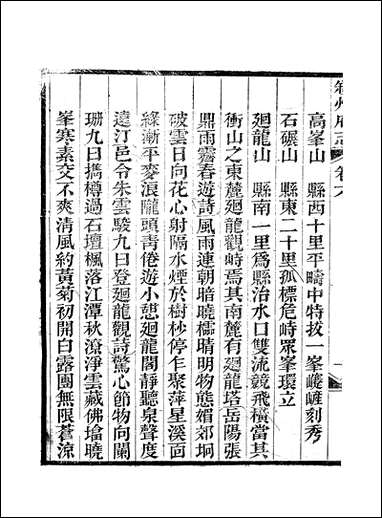 叙州府志 卷六
高峯山 縣西十里平疇中特拔一峯巉巉刻秀
石碾山 縣東二十里孤標危峙眾峯環立
廻龍山 縣南一里為縣治水口雙流競飛橫當其
衝山之東麓廻龍觀峙焉其南麓有廻龍塔岳陽張
鼎雨霽春遊詩風雨連朝暗曉櫺晴明物態媚郊坰
破雲日向花心射隔水煙於樹杪停乍聚萍星溪面
綠漸平麥浪隴頭青倦遊小憩廻龍閣靜聽泉聲度
遠汀邑令朱雲駿九日登廻龍觀詩驚心節物向闌
珊九日攜樽過石壇楓落江潭秋潦淨雲藏佛墖曉
峯寒素交不爽清風約黃菊初開白露團無限蒼涼